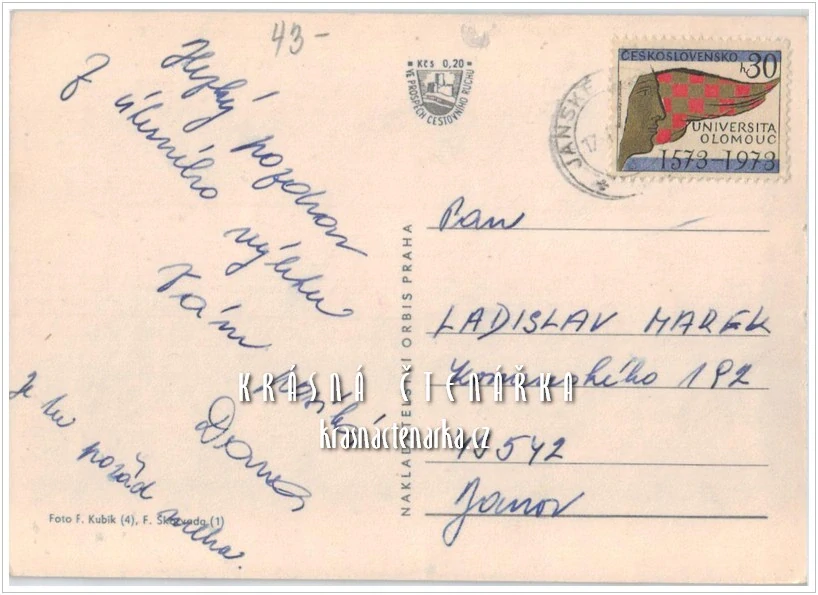 43-
Kčs 0,20
VE PROSPĚCH CESTOVNÍHO RUCHU
ČESKOSLOVENSKO
h30
UNIVERSITA
OLOMOUC
1573–1973
JÁNSKÉ
17
Hezký pozdrav
z
výletu
Vám
Dana
Je tu
pořád mlha.
Foto F. Kubík (4), F.
(1)
NAKLADATELSTVÍ ORBIS PRAHA
Pan
LADISLAV MAREK
Komenského 192
542
Janov
KRÁSNÁ ČTENÁŘKA
krasnactenarka.cz